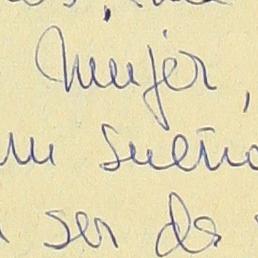 mujer,
un sueño
ser de